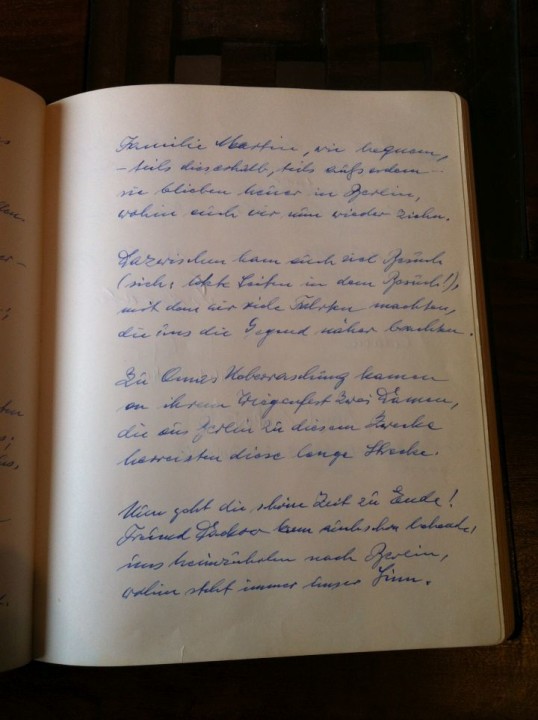 Familie Martin, wie bequem,
– teils dieserhalb, teils außerdem –
sie blieben heuer in Berlin,
wohin auch wir nun wieder ziehn.
Dazwischen kam auch viel Besuch
(sieh, letzte Seiten in dem Besuch!),
mit dem wir viele Fahrten machten,
die uns die Gegend näher brachten.
Zu Omas Ueberraschung kamen
an ihrem Wiegenfest zwei Damen,
die aus Berlin zu diesem Zwecke
herreisten diese lange Strecke.
Nun geht die schöne Zeit zu Ende!
Freund kam schon behende,
uns heimzuholen nach Berlin,
wohin steht immer unser Sinn.